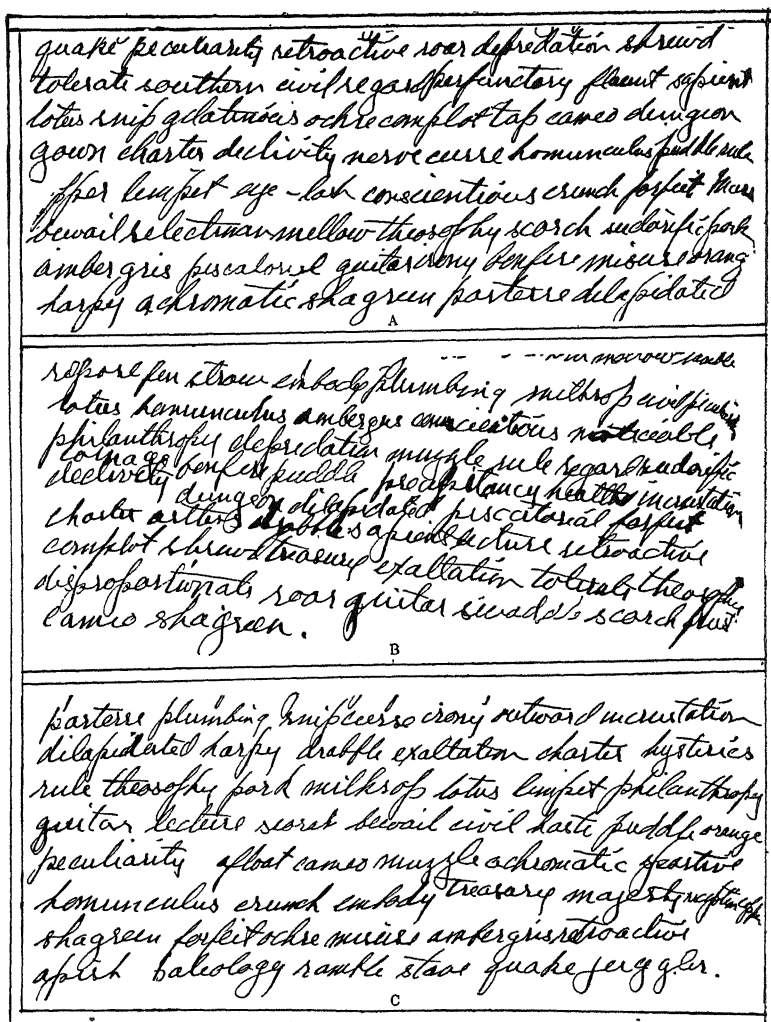 quake peculiarity retroactive roar depredation shrewd
tolerate southern civil regard perfunctory flaunt sapient
lotus snip gelatinous ochre complot tap cameo dungeon
gown charter declivity nerve curse homunculus puddle rule
limpet eye-lash conscientious crunch forfeit
bewail selectman mellow theosophy scorch sudorific pork
ambergris piscatorial guitar irony bonfire misuse orang
harpy achromatic shagreen parterre dilapidated
A
morrow
repose fen straw embody plumbing milksop civil
lotus homunculus ambergris conscientious noticeable
philanthropy depredation muzzle rule regard sudorific
declivity bonfire puddle precipitancy health incrustation
dungeon dilapidated piscatorial forfeit
charter drabble sapient lecture retroactive
complot shrewd treasury exaltation tolerate theosophy
disproportionate roar guitar swaddle scorch
cameo shagreen.
B
parterre plumbing snip curse irony outward incrustation
dilapidated harpy drabble exaltation charter hysterics
rule theosophy pork milksop lotus limpet philanthropy
guitar lecture scorch bewail civil haste puddle orange
peculiarity afloat cameo muzzle achromatic sportive
homunculus crunch embody treasury majesty
shagreen forfeit ochre misuse ambergris retroactive
apish baleology ramble stave quake juggler.
C